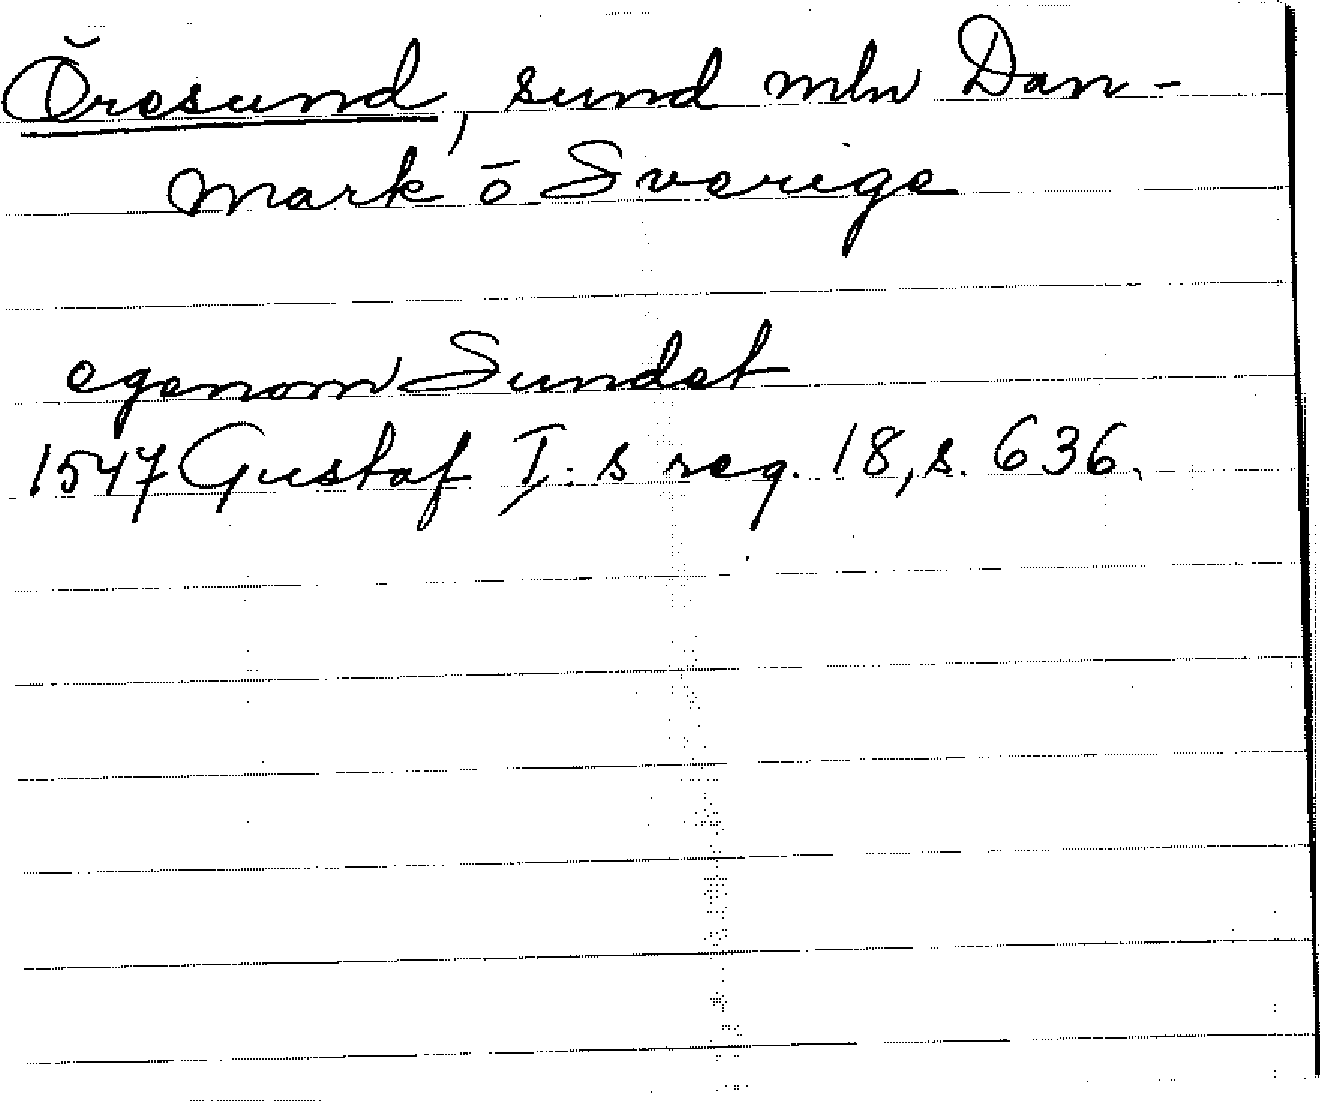 Öresund, sund mln Dan-
mark ö Sverige
egenom Sundet
1547 Gustaf I:s reg. 18, s. 636.